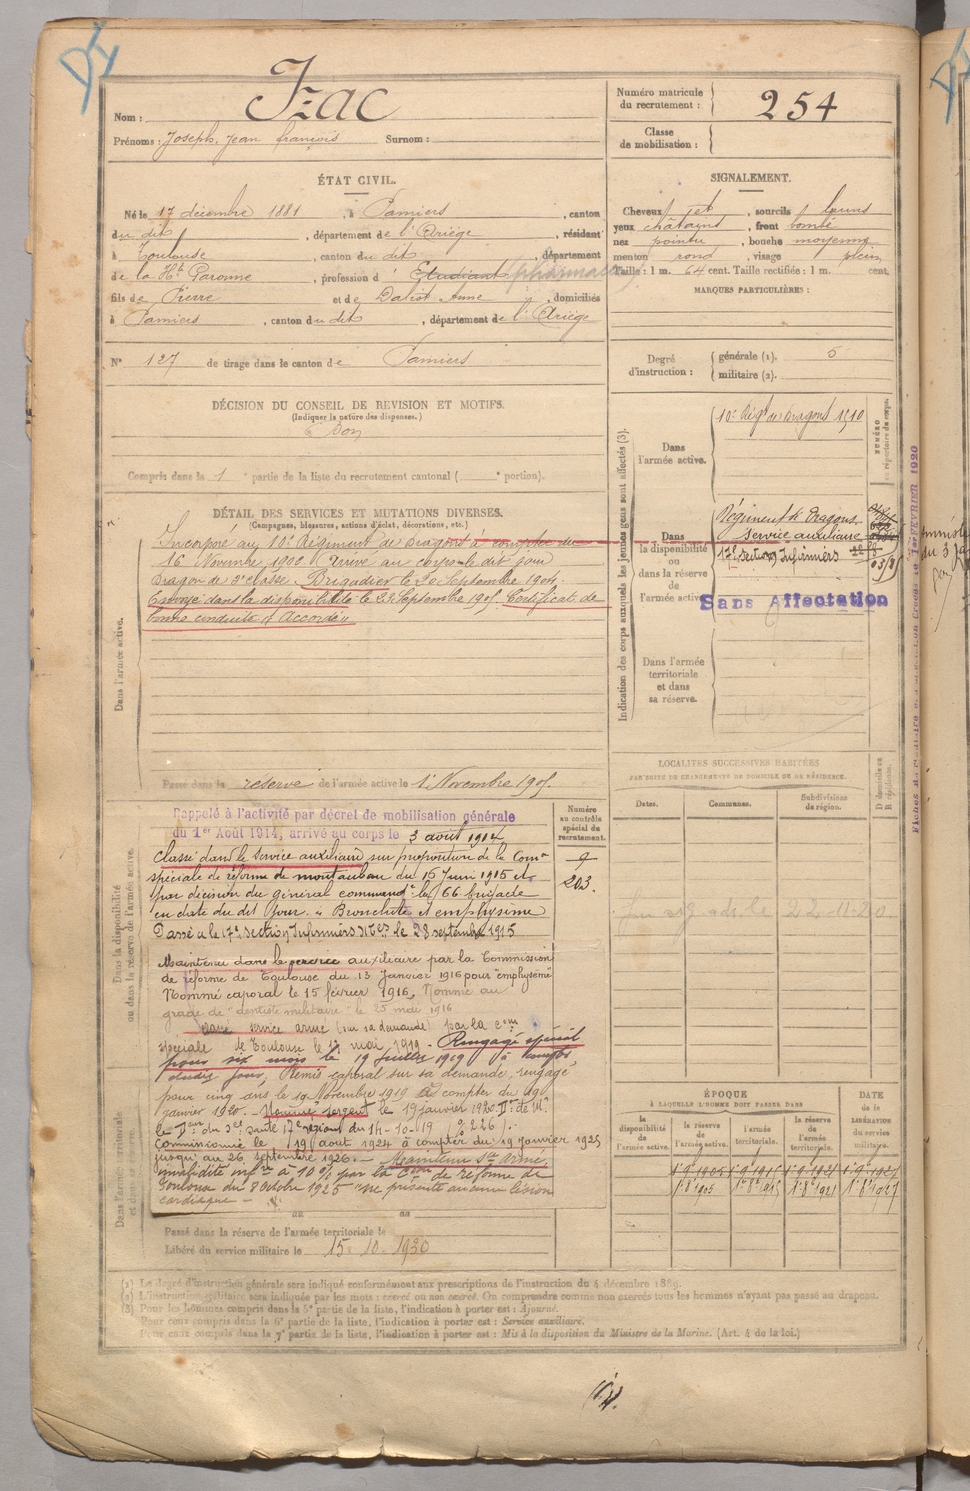 Nom : Izac
Prénoms : Joseph, Jean François Surnom :
Numéro matricule du recrutement : 254
Classe de mobilisation :
ÉTAT CIVIL.
Né le 17 décembre 1881, à Pamiers, canton
du dit, département de l'Ariége, résidant
à Toulouse, canton du dit, département
de la Hte Garonne, profession d' Etudiant (pharmacie)
fils de Pierre et de Dabiot Anne, domiciliés
à Pamiers, canton du dit, département de l'Ariége
N° 127 de tirage dans le canton de Pamiers
SIGNALEMENT.
Cheveux et, sourcils bruns
yeux châtains, front bombé
nez pointu, bouche moyenne
menton rond, visage plein
Taille : 1 m. 64 cent. Taille rectifiée : 1 m. cent.
MARQUES PARTICULIÈRES :
Degré d'instruction : générale (1). 5
militaire (2).
DÉCISION DU CONSEIL DE REVISION ET MOTIFS.
(Indiquer la nature des dispenses.)
Bon
Compris dans la 1 partie de la liste du recrutement cantonal ( portion).
DÉTAIL DES SERVICES ET MUTATIONS DIVERSES.
(Campagnes, blessures, actions d'éclat, décorations, etc.)
Dans l'armée active.
Incorporé au 10e Régiment de Dragons à compter du
16 Novembre. Arrivé au corps le dit jour
Dragon de 2e classe. Brigadier le 20 Septembre 1904.
Envoyé dans la disponibilité le 23 Septembre 1905. Certificat de
bonne conduite "Accordé"
Passé dans la réserve de l'armée active le 1er Novembre 1905.
Indication des corps auxquels les jeunes gens sont affectés (3).
Dans l'armée active.
10e Régt de Dragons 1510
NUMÉRO au répertoire du corps.
Dans la disponibilité ou dans la réserve de l'armée active.
Régiment de Dragons
Service auxiliaire
17e Section Infirmiers
Sans Affectation
Dans l'armée territoriale et dans sa réserve.
LOCALITÉS SUCCESSIVES HABITÉES
PAR SUITE DE CHANGEMENTS DE DOMICILE OU DE RÉSIDENCE.
Dates. Communes. Subdivisions de région. D domicile ou R résidence.
22-11-20
Dans la disponibilité ou dans la réserve de l'armée active.
Numéro au contrôle spécial du recrutement.
9
203.
Rappelé à l'activité par décret de mobilisation générale
du 1er Août 1914, arrivé au corps le 3 août 1914
Classé dans le service auxiliaire sur proposition de la Comon
spéciale de réforme de montauban du 16 Juin 1915 et
par décision du Général commandt la 66 brigade
en date du dit jour. "Bronchite et emphysème
Passé à la 17e Section Infirmiers Mres le 28 septembre 1915
Maintenu dans le service auxiliaire par la Commission
de réforme de Toulouse du 13 Janvier 1916 pour "emphysème"
Nommé caporal le 15 février 1916, Nommé au
grade de "dentiste militaire" le 25 mai 1916
Classé service armé (sur sa demande) par la Com
spéciale de Toulouse le mai 1919 - Rengagé spécial
pour six mois le 19 Juillet 1919 à compter
dudit jour. Remis caporal sur sa demande, rengagé
pour cinq ans le 19 Novembre 1919 à compter du 19
janvier 1920. Nommé sergent le 19 janvier 1920
17e région du 14-10-19
Commissionné le 19 aout 1924 à compter du 19 janvier 1925
jusqu'au 26 septembre 1926. Maintenu Sce Armé,
invalidité infre à 10 % par la Con de réforme de
Toulouse du 8 Octobre 1925 "ne présente aucune lésion
cardiaque"
Dans l'armée territoriale et dans sa réserve.
Passé dans la réserve de l'armée territoriale le
Libéré du service militaire le 15-10-1930
ÉPOQUE
À LAQUELLE L'HOMME DOIT PASSER DANS
DATE de la LIBÉRATION du service militaire.
la disponibilité de l'armée active. la réserve de l'armée active. l'armée territoriale. la réserve de l'armée territoriale.
1er 9bre 1905 1er 9bre 1915 1er 9bre 1921 1er 9bre 1927
1er 8bre 1905 1er 8bre 1915 1er 8bre 1921 1er 8bre 1927
(1) Le degré d'instruction générale sera indiqué conformément aux prescriptions de l'instruction du 4 décembre 1889.
(2) L'instruction militaire sera indiquée par les mots : exercé ou non exercé. On comprendra comme non exercés tous les hommes n'ayant pas passé au drapeau.
(3) Pour les hommes compris dans la 5e partie de la liste, l'indication à porter est : Ajourné.
Pour ceux compris dans la 6e partie de la liste, l'indication à porter est : Service auxiliaire.
Pour ceux compris dans la 7e partie de la liste, l'indication à porter est : Mis à la disposition du Ministre de la Marine. (Art. 4 de la loi.)